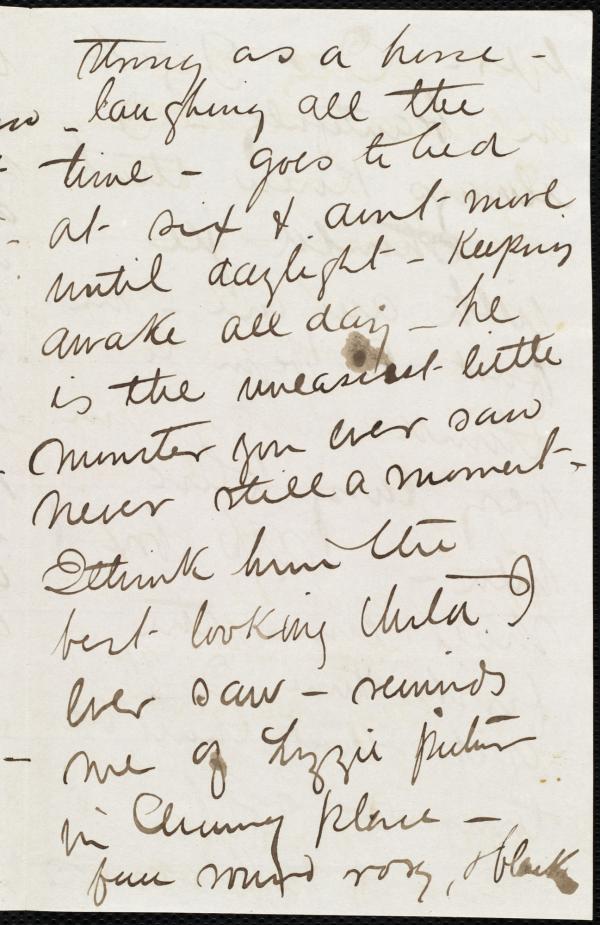 strong as a horse -
- laughing all the
time - goes to bed
at six & aint move
until daylight - Keeping
awake all day - he
is the uneasiest little
monster you ever saw
never still a moment -
I think him the
best looking child I
ever saw - reminds
me of Lizzie picture
in Chimny place -
face round rosy, & black